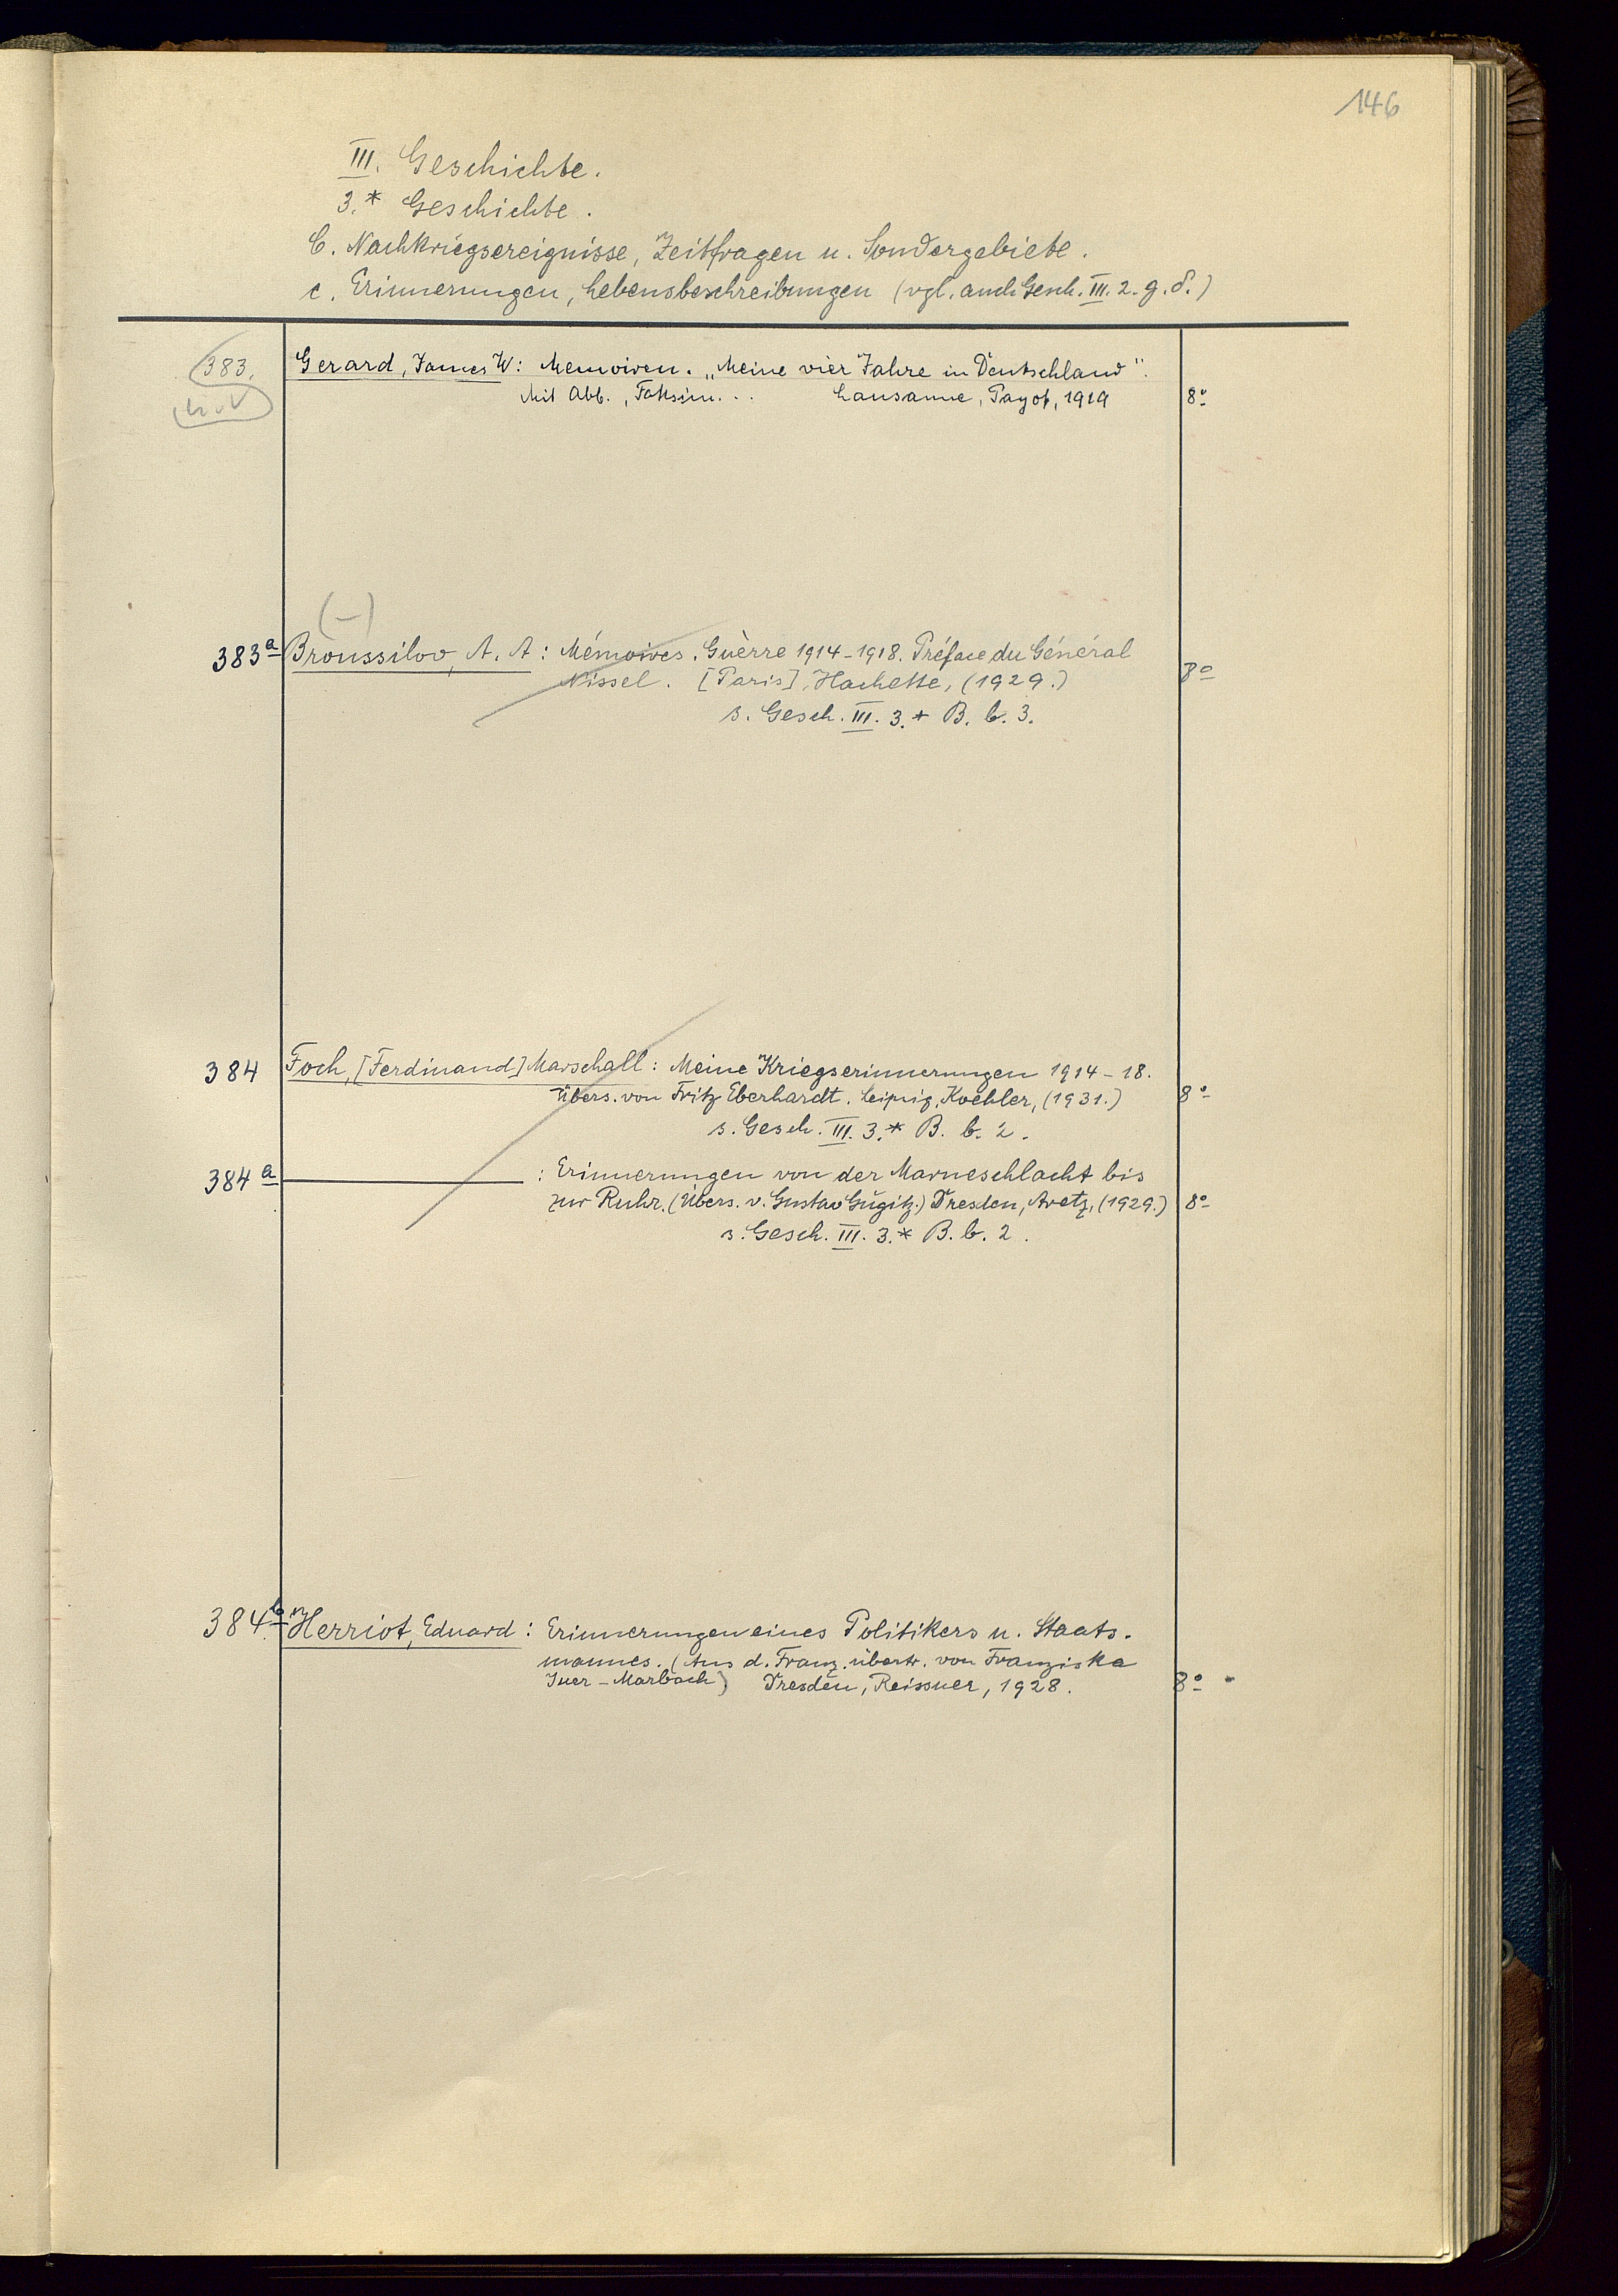 146
III. Geschichte.
3.* Geschichte.
C. Nachkriegsereignisse, Zeitfragen u. Sondergebiete.
c. Erinnerungen, Lebensbeschreibungen (vgl. auch Gesch. III. 2. g. δ.)
383. Gerard, James W: Memoiren. „Meine vier Jahre in Deutschland".
Mit Abb., Faksim... Lausanne, Payot, 1919 8º
(-)
383a Broussilov, A. A: Mémoires. Guèrre 1914-1918. Préface du Général
Nissel. [Paris], Hachette, (1929.) 8º
s. Gesch. III. 3.* B. b. 3.
384 Foch, [Ferdinand] Marschall: Meine Kriegserinnerungen 1914-18.
Übers. von Fritz Eberhardt. Leipzig, Koehler, (1931.) 8º
s. Gesch. III. 3.* B. b. 2.
384a : Erinnerungen von der Marneschlacht bis
zur Ruhr. (Übers. v. Gustav Gugitz.) Dresden, Aretz, (1929.) 8º
s. Gesch. III. 3.* B. b. 2.
384b Herriot, Eduard: Erinnerungen eines Politikers u. Staats-
mannes. (Aus d. Franz. übertr. von Franziska
Juer-Marbach) Dresden, Reissner, 1928. 8º